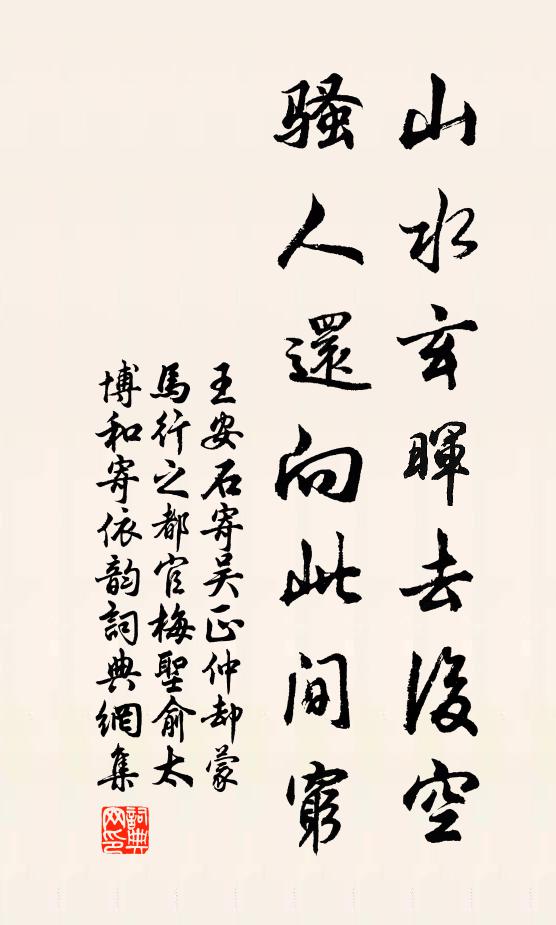 山水玄暉去後空
騷人還向此間窮
王安石寄吳正仲却蒙
馬行之都官梅聖俞太
博和寄依韵詞典網集
詞典
网印